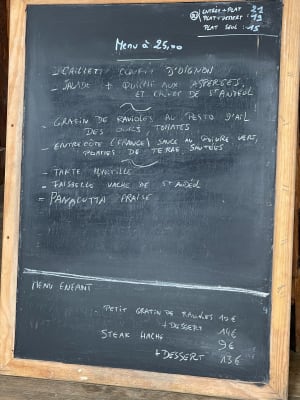 ENTRÉE + PLAT 21
PLAT + DESSERT 19
PLAT SEUL 15
MENU à 25,00
- CAILLETTE CONFIT D'OIGNON
- SALADE + QUICHE AUX ASPERGES,
ET CHÈVRE DE ST ANDÉOL
- GRATIN DE RAVIOLES AU PESTO D'AIL
DES OURS, TOMATES
- ENTRECÔTE (FRANCE) SAUCE AU POIVRE VERT,
POMMES DE TERRE SAUTÉES
- TARTE MYRTILLE
- FAISSELLE VACHE DE ST ANDÉOL
- PANACOTTA FRAISE
MENU ENFANT
PETIT GRATIN DE RAVIOLES 12€
+ DESSERT 14€
STEAK HACHÉ 9€
+ DESSERT 13€